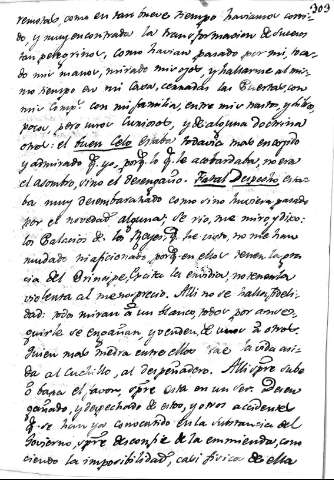 309
remotas, como en tan breve tiempo haviamos corri-
do, y muy encontrada la transformacion de suenos
tan peregrinos, como havian pasado por mi, toca-
do mis manos, mirado mis ojos, y hallarme al mis-
mo tiempo en mi Casa, cerradas las Puertas, con
mis con mi familia, entre mis trastos, y libros
pocos, pero unos curiosos, y de alguna doctrina
otros: el buen Celo estaba todavia mas encojido
y admirado q. yo, porq. lo q. le acobardaba, no era
el asombro, sino el desengaño. Fatal Despecho, esta-
ba muy desembarazado como sino huviera pasado
por el novedad alguna; se rio, me miro y dijo:
los Palacios de los Reyes, q. he visto, no me han
mudado ni aficionado, porq. en ellos tienen la gra-
cia del Principe, excita la envidia, no tenerla
violenta al menosprecio. Alli no se halla fideli-
dad: todos miran á un blanco, todos por
se engañan, y venden, de unos á otros.
Quien mas medra entre ellos trae la vida asi-
da al Cuchillo, al despeñadero. Alli spre. sube
ó baja el favor, spre. esta en un ser. Desen-
gañado, y despechado de estos, y otros accidentes
q. se han ya conocido en la sustancia del
Govierno, spre. desconfie de la enmienda, cono-
ciendo la imposibilidad, casi fisica de ella